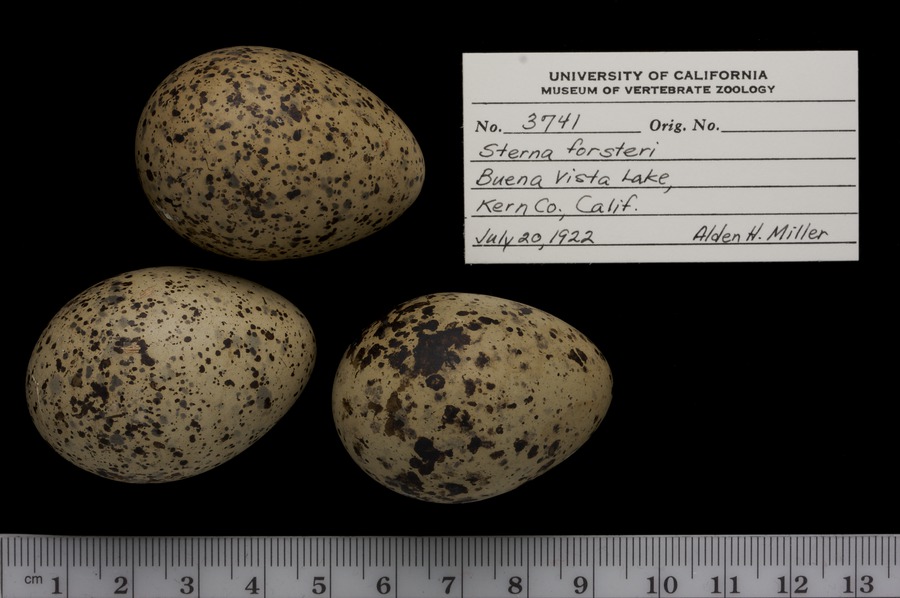 UNIVERSITY OF CALIFORNIA
MUSEUM OF VERTEBRATE ZOOLOGY
No. 3741 Orig. No.
Sterna forsteri
Buena Vista Lake,
Kern Co., Calif.
July 20, 1922 Alden H. Miller
cm 1 2 3 4 5 6 7 8 9 10 11 12 13